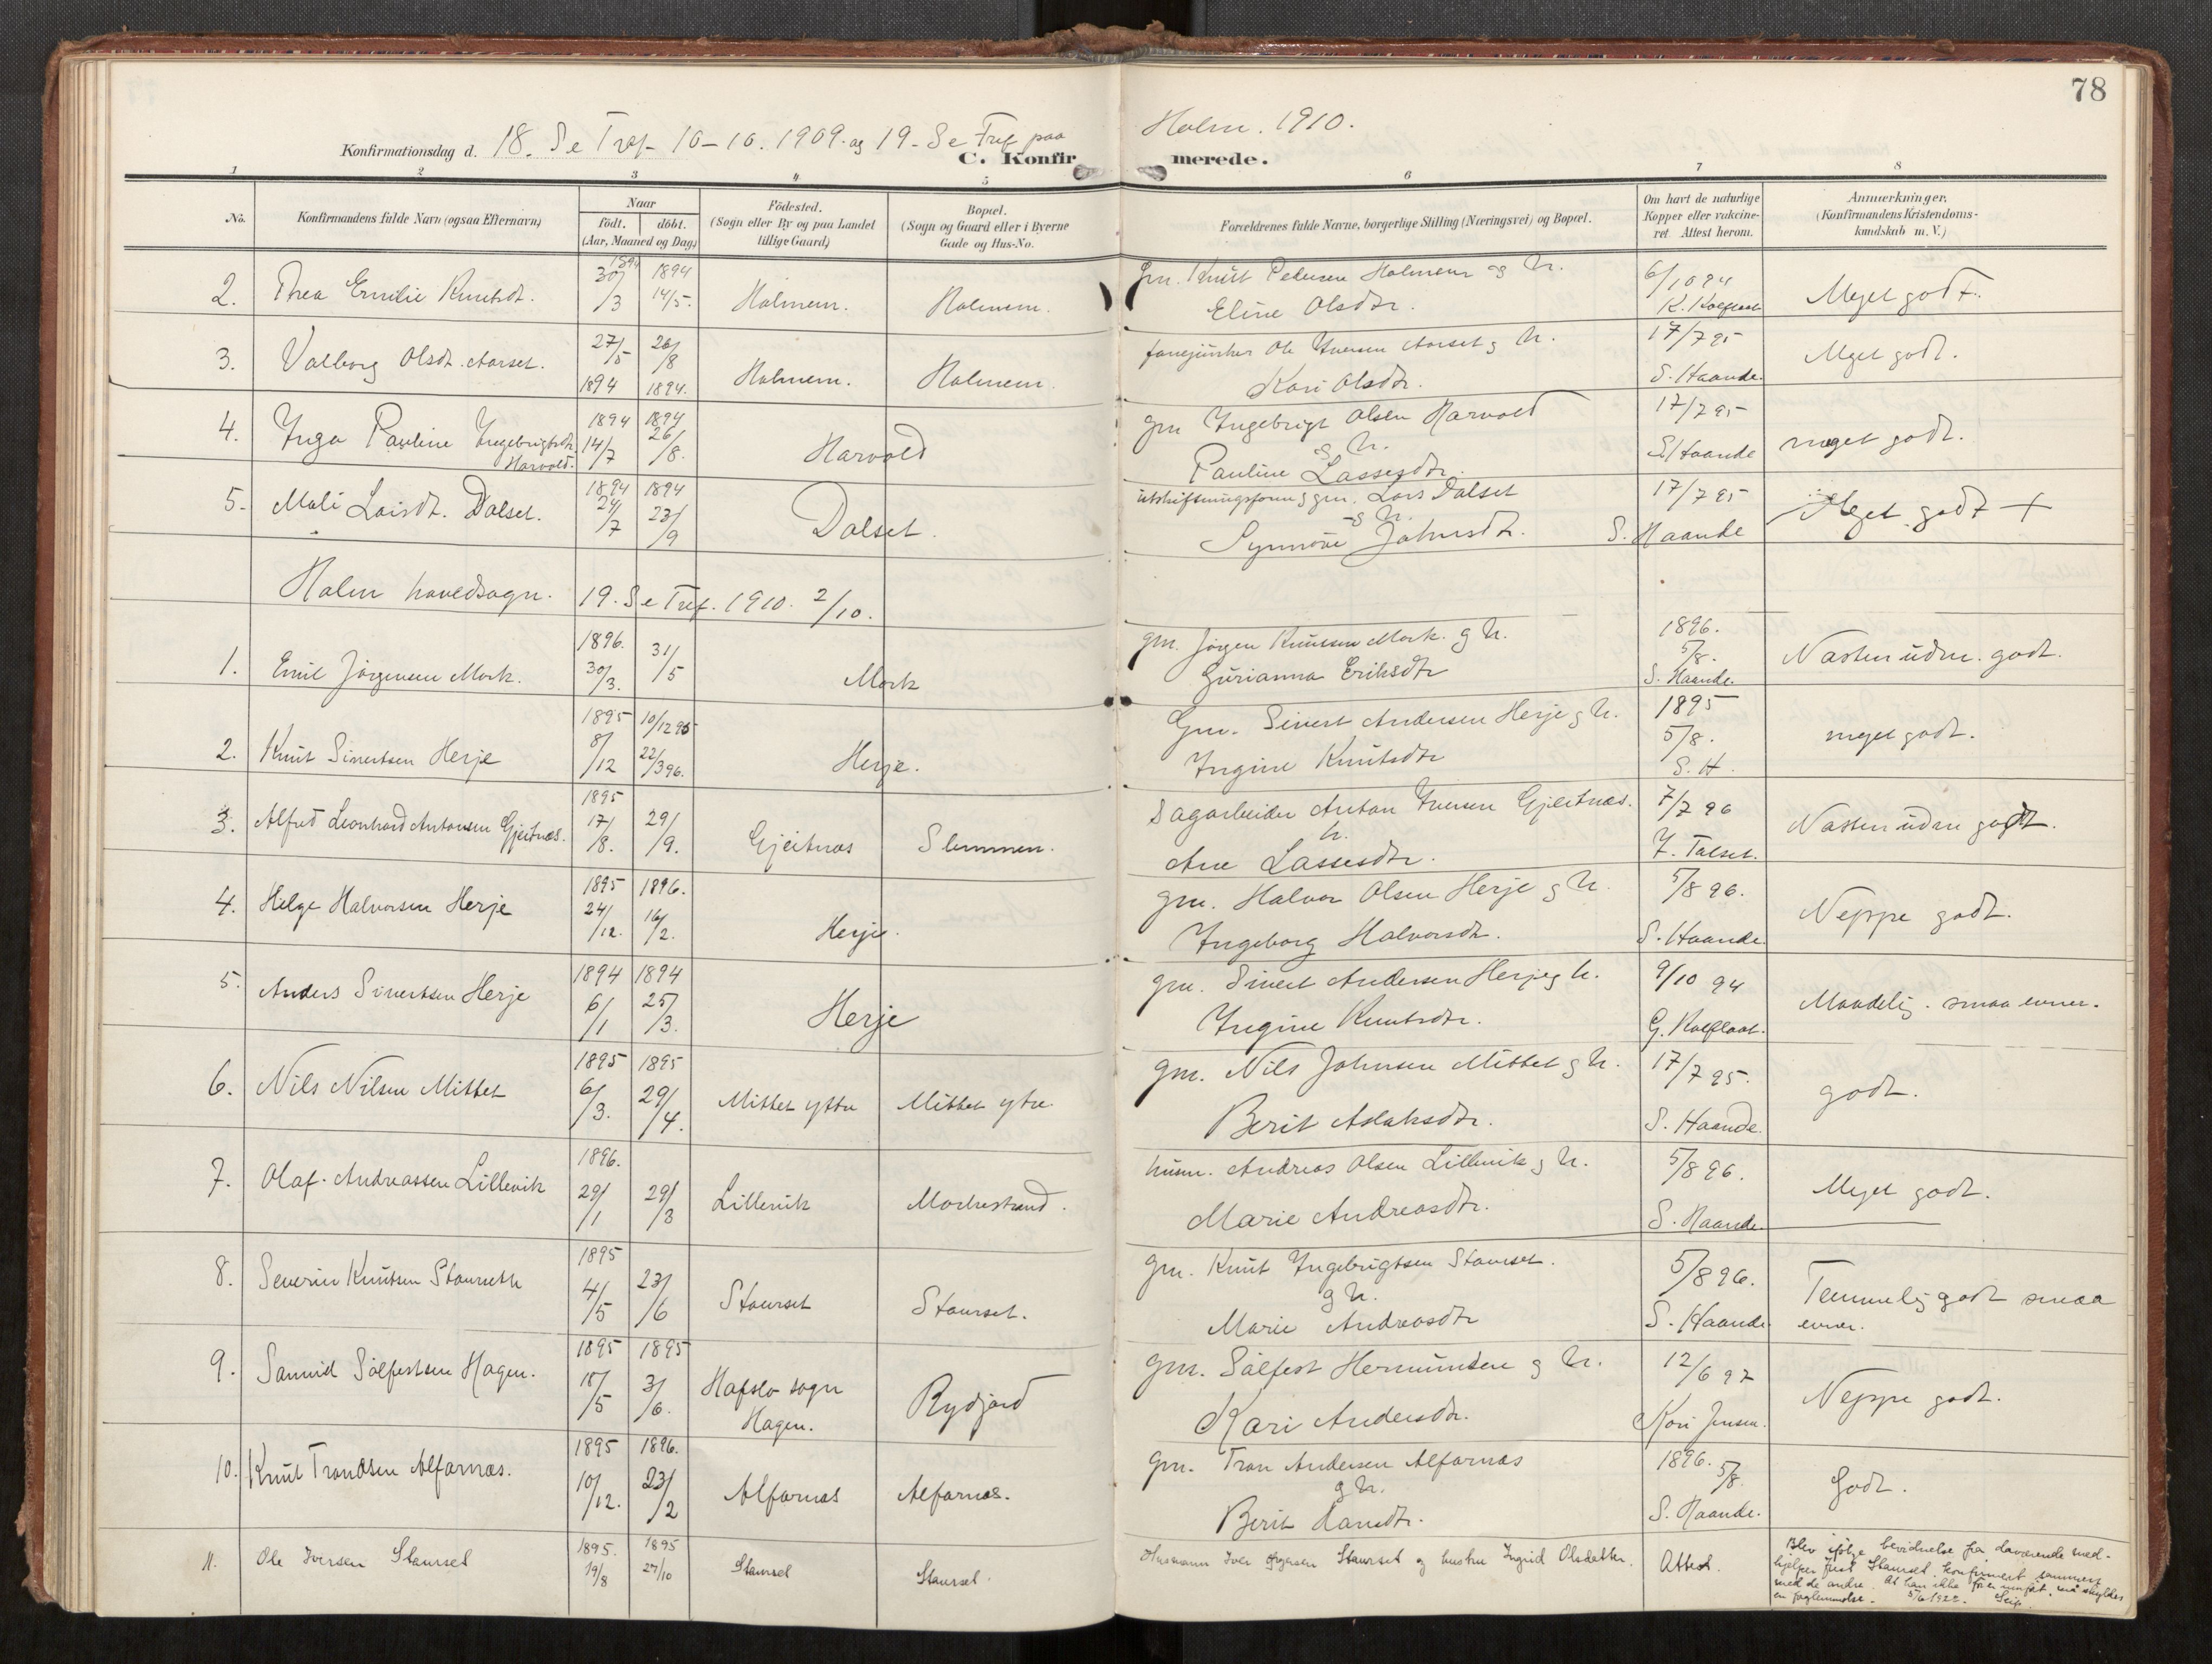 78
Konfirmationsdag d. 18. S e Tref. 10-10. 1909. og 19. S e Tref paa Holm. 1910.
C. Konfirmerede.
1 2 3 4 5 6 7 8
No.
Konfirmandens fulde Navn (ogsaa Efternavn)
Naar
født. døbt.
(Aar, Maaned og Dag)
Fødested.
(Sogn eller By og paa Landet
tillige Gaard)
Bopæl.
(Sogn og Gaard eller i Byerne
Gade og Hus-No.
Forældrenes fulde Navne, borgerlige Stilling (Næringsvei) og Bopæl.
Om havt de naturlige
Kopper eller vaccine-
ret Attest herom.
Anmærkninger.
(Konfirmandens Kristendoms-
kundskab m. V.)
2. Thea Emilie Knutsdt. 1894 30/3 1894 14/5. Holmem. Holmem. gm. Knut Pedersen Holmem og h. Eline Olsdtr. 6/10 94 Meget godt.
3. Valborg Olsdt. Aarset. 27/5 1894 26/8 1894. Holmem. Holmem. fanejunker Ole Iversen Aarset og h. Kari Olsdtr. 17/7 95 S. Haande. Meget godt.
4. Inga Pauline Ingebrigtsdt. Harvold. 1894 14/7 1894 26/8. Harvold gm Ingebrigt Olsen Harvold og h. Pauline Lassesdtr. 17/7 95 S. Haande meget godt.
5. Mali Larsdt. Dalset. 1894 24/7 1894 23/9 Dalset. utskiftningsform og gm. Lars Dalset og h. Synnøve Johnsdt. 17/7 95 S. Haande Meget godt +
Holm hovedsogn. 19. S e Tref. 1910. 2/10.
1. Emil Jørgensen Mork. 1896. 30/3. 31/5 Mork gm. Jørgen Knutsen Mork. og h. Gurianna Eriksdtr 1896. 5/8. S. Haande. Næsten udm. godt.
2. Knut Sivertsen Herje 1895 8/12 10/12 95 22/3 96. Herje. Gm. Sivert Andersen Herje og h. Ingine Knutsdtr 1895 5/8. S. H. meget godt.
3. Alfred Leonhard Antonsen Gjeitnæs. 1895 17/8. 29/9. Gjeitnæs Slemmen. Sagarbeider Anton Iversen Gjeitnæs. h. Ane Lassesdtr. 7/7 96 Næsten udm godt.
4. Helge Halvorsen Herje 1895 24/12. 1896. 16/2. Herje. gm. Halvor Olsen Herje og h. Ingeborg Halvorsdt. 5/8 96. S. Haande. Neppe godt.
5. Anders Sivertsen Herje 1894 6/1 1894 25/3. Herje gm. Sivert Andersen Herje og h. Ingine Knutsdtr. 9/10 94 Maadelig. smaa evner.
6. Nils Nilsen Mittet 1895 6/3. 1895 29/4. Mittet yttre Mittet ytre gm. Nils Johnsen Mittet og h. Berit Aslaksdtr. 17/7 95. S. Haande. godt.
7. Olaf. Andreassen Lillevik 1896. 29/1 29/3 Lillevik Morkestrand. husm. Andreas Olsen Lillevik og h. Marie Andreasdtr. 5/8 96. S. Haande. Meget godt.
8. Severin Knutsen Staurseth 1895 4/5 23/6 Staurset Staurset. gm. Knut Ingebrigtsen Staurset. og h. Marie Andreasdtr 5/8 96. S. Haande Temmelig godt smaa evner.
9. Samuel Sølfestsen Hagen. 1895 18/5 1895 3/6. Hafslo sogn Hagen. Rydjord gm. Sølfest Hermundsen og h. Kari Andersdtr. 12/6 97 Kari Jensen. Neppe godt.
10. Knut Trondsen Alfarnæs. 1895 10/12. 1896. 23/2 Alfarnæs Alfarnæs. gm. Tron Andersen Alfarnæs og h. Berit Hansdtr. 1896. 5/8. S. Haande. Godt.
11. Ole Iversen Staurset 1895. 19/8 1895 27/10 Staurset Staurset. Husmann Iver Staurset og hustru Ingrid Olsdatter. Attest. Blev ifølge bevidnelse fra daværende med-
hjelper Just Staurset konfirmert sammen
med de andre. At han ikke må skyldes
en forglemmelse. 5/6 1922. Seip.